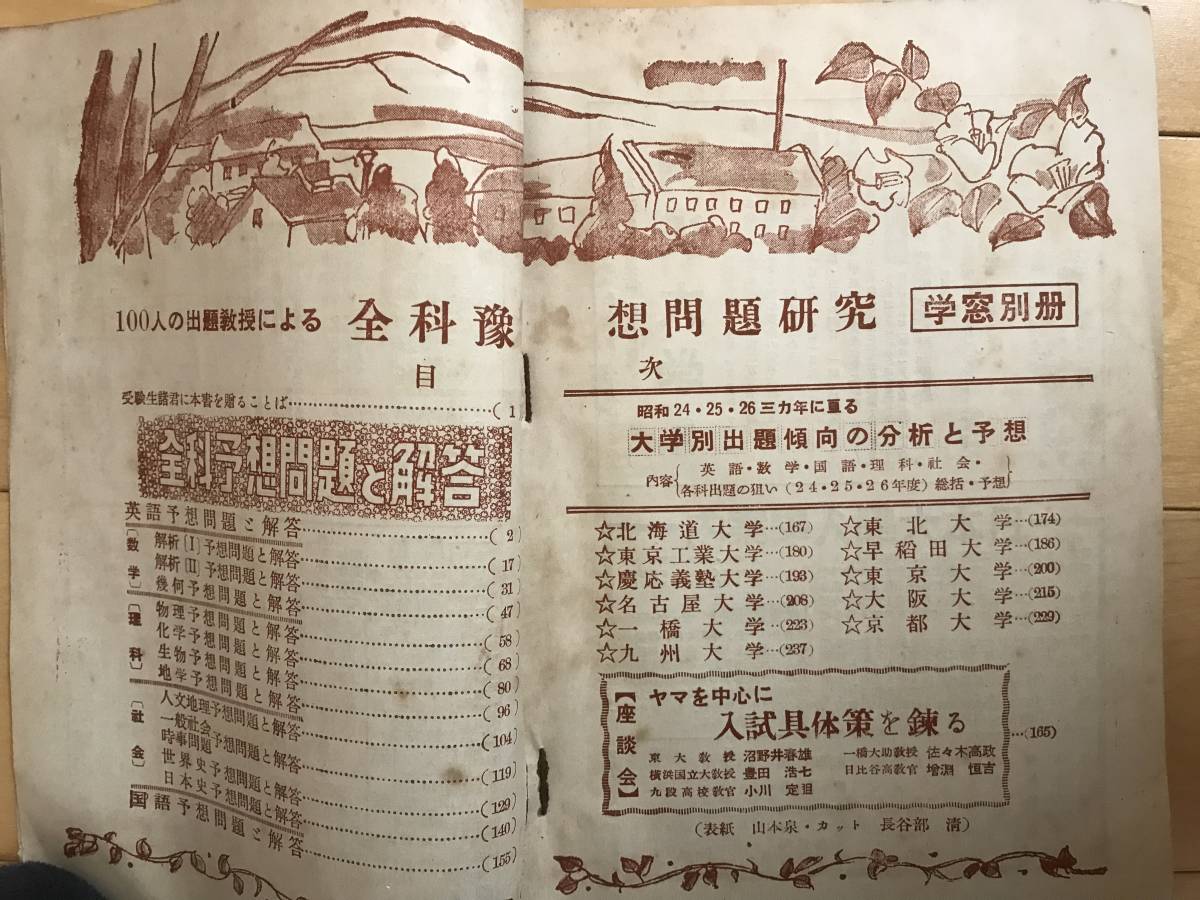 100人の出題教授による 全科豫想問題研究 学窓別册
目次
受験生諸君に本書を贈ることば……(1)
全科予想問題と解答
英語予想問題と解答……(2)
〔数学〕
解析〔I〕予想問題と解答……(17)
解析〔II〕予想問題と解答……(31)
幾何予想問題と解答……(47)
〔理科〕
物理予想問題と解答……(58)
化学予想問題と解答……(68)
生物予想問題と解答……(80)
地学予想問題と解答……(96)
〔社会〕
人文地理予想問題と解答……(104)
一般社会
時事問題 予想問題と解答……(119)
世界史予想問題と解答……(129)
日本史予想問題と解答……(140)
国語予想問題と解答……(155)
昭和24・25・26三カ年に亘る
大学別出題傾向の分析と予想
内容{英語・数学・国語・理科・社会・
各科出題の狙い(24・25・26年度)総括・予想}
☆北海道大学…(167) ☆東北大学…(174)
☆東京工業大学…(180) ☆早稻田大学…(186)
☆慶応義塾大学…(193) ☆東京大学…(200)
☆名古屋大学…(208) ☆大阪大学…(215)
☆一橋大学…(223) ☆京都大学…(229)
☆九州大学…(237)
【座談会】
ヤマを中心に
入試具体策を錬る…(165)
東大教授 沼野井春雄 一橋大助教授 佐々木高政
横浜国立大教授 豊田浩七 日比谷高教官 増淵恒吉
九段高校教官 小川定
(表紙 山本泉・カット 長谷部清)